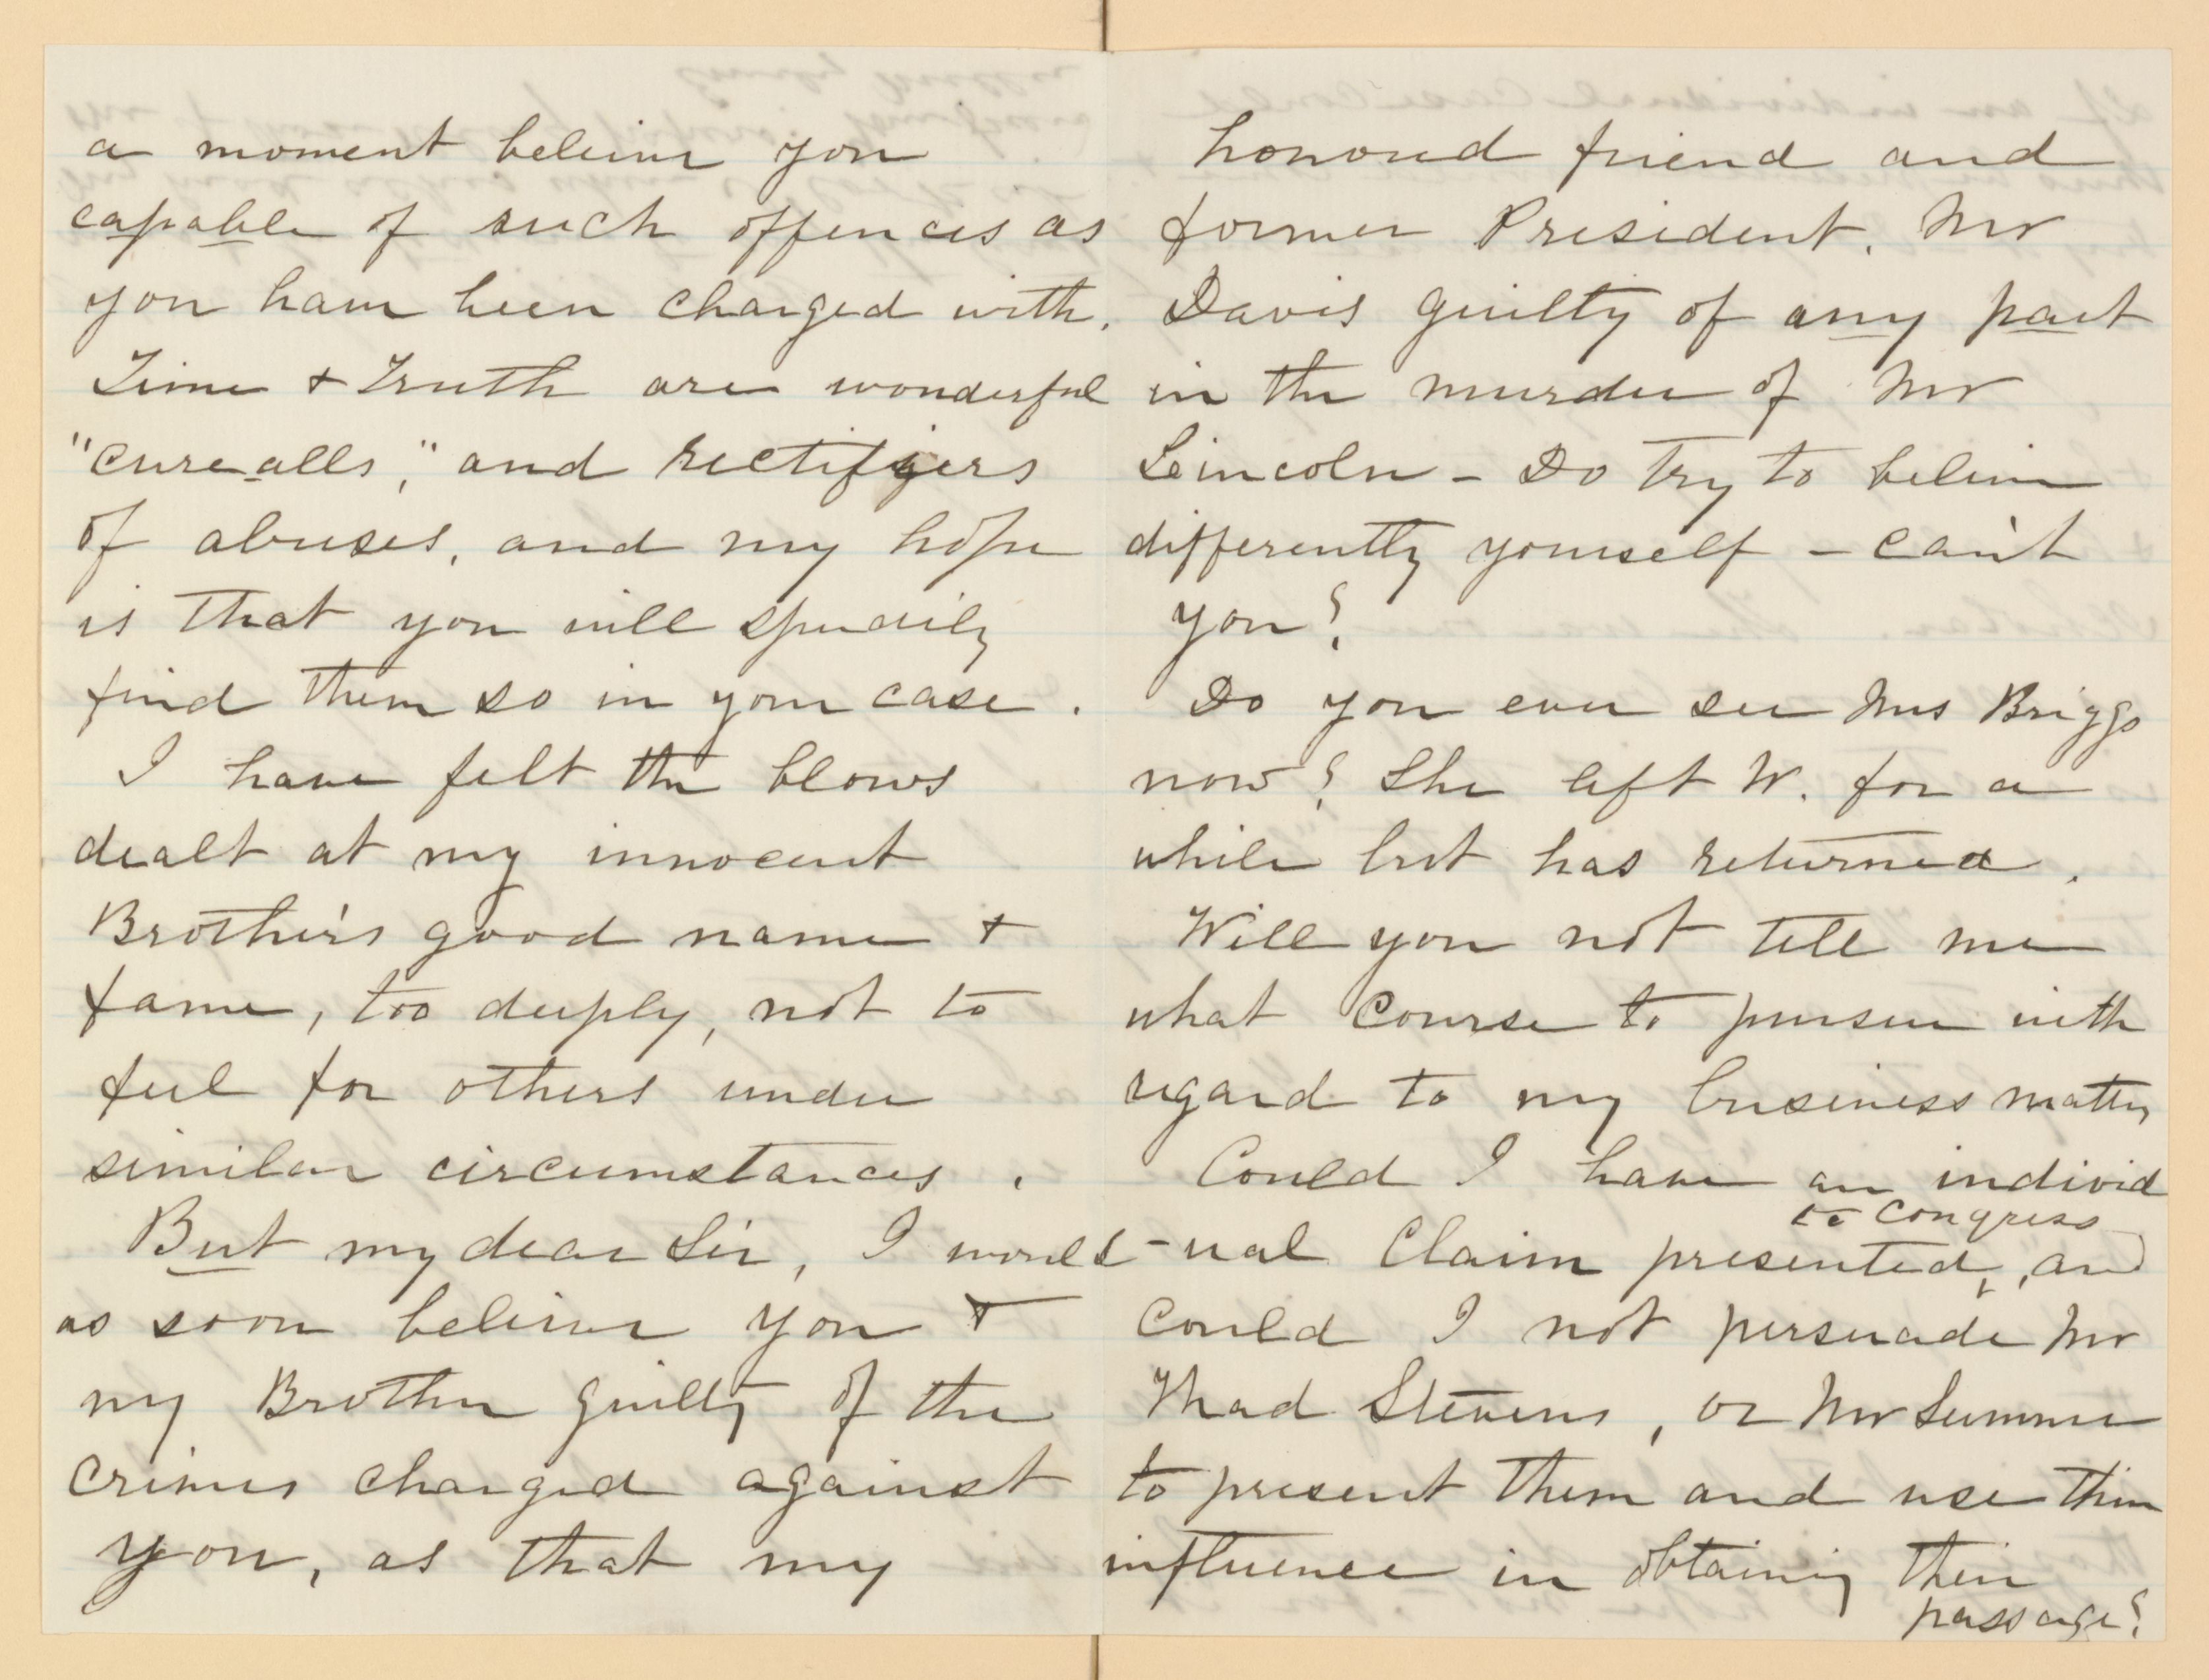 a moment believe you
capable of such offences as
you have been charged with.
Time + Truth are wonderful
"cure-alls," and rectifiers
of abuses, and my hope
is that you will speedily
find them so in your case.
I have felt the blows
dealt at my innocent
Brother's good name +
fame, too deeply, not to
feel for others under
similar circumstances.
But my dear Sir, I would
as soon believe you +
my Brother guilty of the
crimes charged against
you, as that my
honored friend and
former President, Mr
Davis guilty of any part
in the murder of Mr
Lincoln - Do try to believe
differently yourself - can't
you?
Do you ever see Mrs Briggs
now? She left W. for a
while but has returned.
Will you not tell me
what course to pursue with
regard to my business matters
Could I have an individ
to Congress
-ual Claim presented, and
could I not persuade Mr
Thad Stevens, or Mr Sumner
to present them and use their
influence in obtaining their
passage?